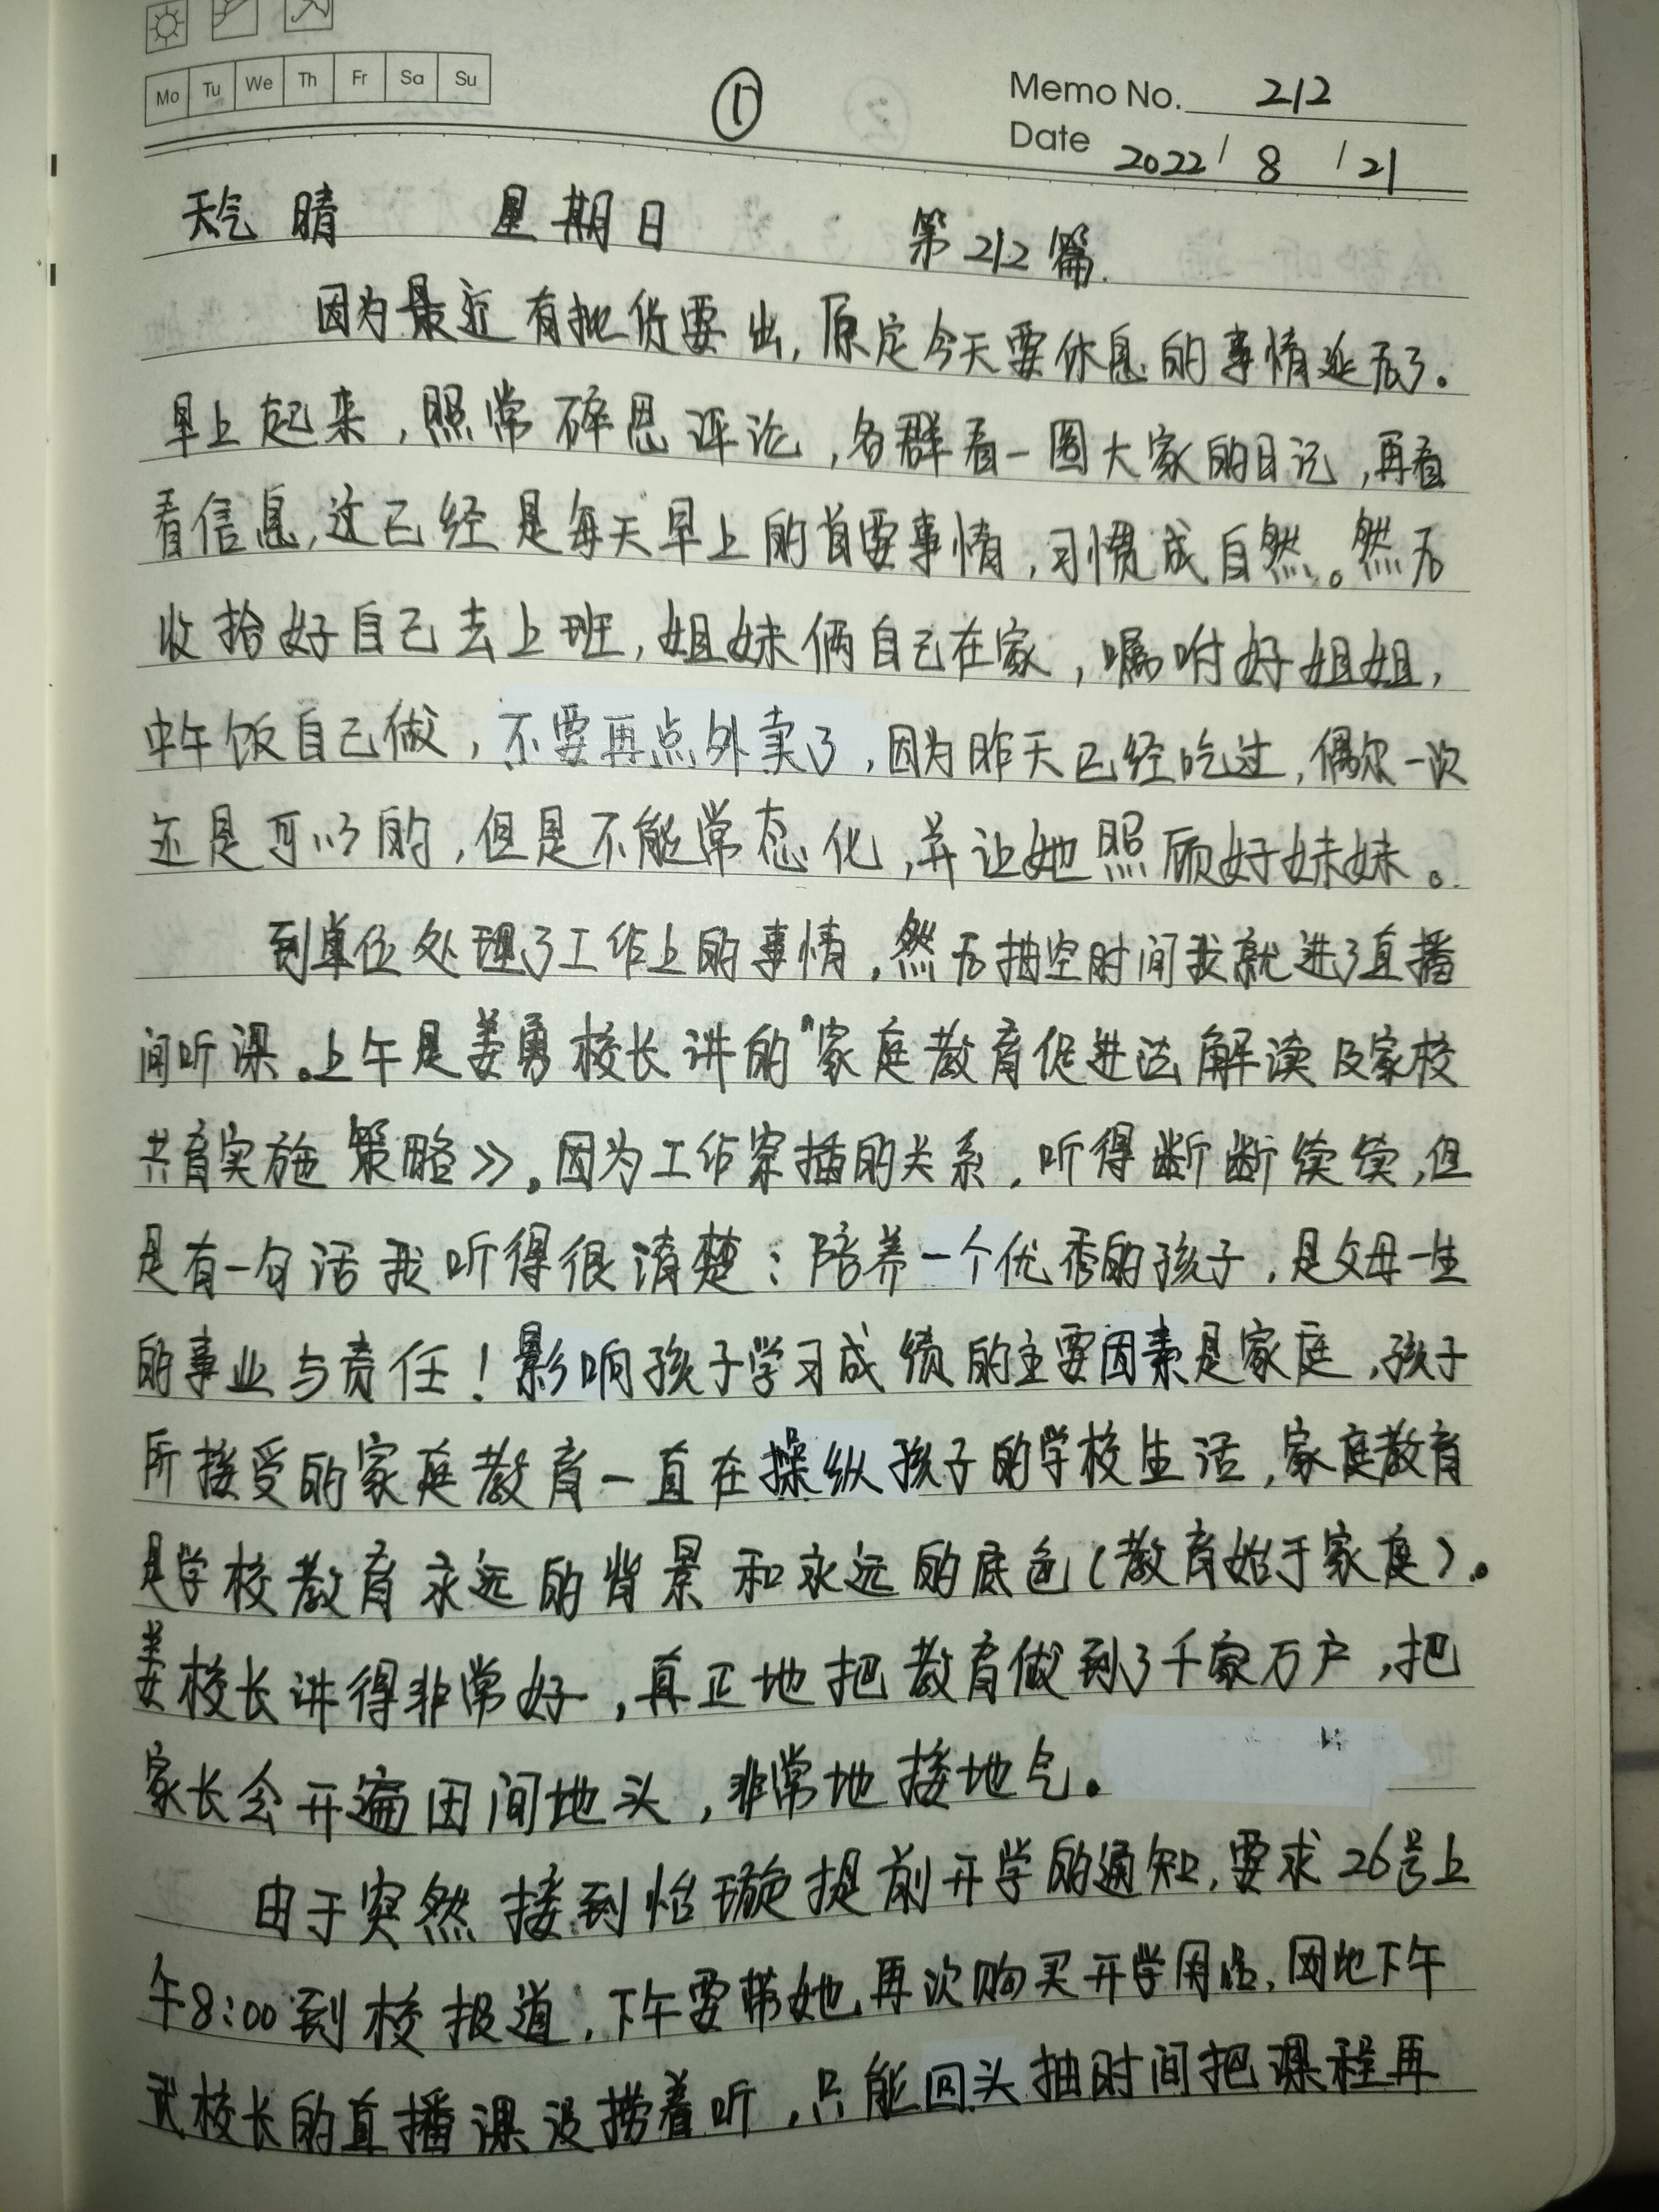 Mo Tu We Th Fr Sa Su
①
Memo No. 212
Date 2022 / 8 / 21
天气 晴 星期日 第212篇.
因为最近有批货要出,原定今天要休息的事情延后了。
早上起来,照常碎思评论,各群看一圈大家的日记,再看
看信息,这已经是每天早上的首要事情,习惯成自然。然后
收拾好自己去上班,姐妹俩自己在家,嘱咐好姐姐,
中午饭自己做,不要再点外卖了,因为昨天已经吃过,偶尔一次
还是可以的,但是不能常态化,并让她照顾好妹妹。
到单位处理了工作上的事情,然后抽空时间我就进了直播
间听课。上午是姜勇校长讲的"家庭教育促进法解读及家校
共育实施策略》。因为工作穿插的关系,听得断断续续,但
是有一句话我听得很清楚:培养一个优秀的孩子,是父母一生
的事业与责任!影响孩子学习成绩的主要因素是家庭,孩子
所接受的家庭教育一直在操纵孩子的学校生活,家庭教育
是学校教育永远的背景和永远的底色(教育始于家庭)。
姜校长讲得非常好,真正地把教育做到了千家万户,把
家长会开遍田间地头,非常地接地气。
由于突然接到怡璇提前开学的通知,要求26号上
午8:00到校报道,下午要带她再次购买开学用品,因此下午
武校长的直播课没捞着听,只能回头抽时间把课程再